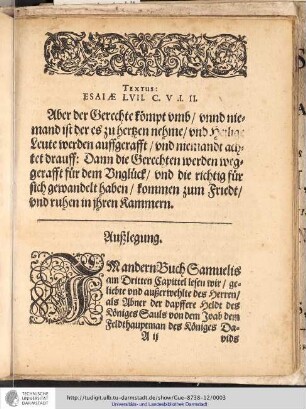 TEXTUS:
ESAIÆ LVII. C. V. I. II.
Aber der Gerechte kömpt vmb / vnnd nie-
mand ist der es zu hertzen nehme / vnd Heilige
Leute werden auffgerafft / vnd niemandt ach-
tet drauff: Dann die Gerechten werden weg-
gerafft für dem Vnglück / vnd die richtig für
sich gewandelt haben / kommen zum Friedt /
vnd ruhen in jhren Kammern.
Außlegung.
IM andern Buch Samuelis
am Dritten Capittel lesen wir / ge-
liebte vnd außerwehlte des Herren /
als Abner der dapffere Heldt des
Königes Sauls von dem Joab dem
Feldthauptman des Königes Da-
A ij
vids
TECHNISCHE
UNIVERSITÄT
DARMSTADT
http://tudigit.ulb.tu-darmstadt.de/show/Gue-8738-12/0003
Universitäts- und Landesbibliothek Darmstadt